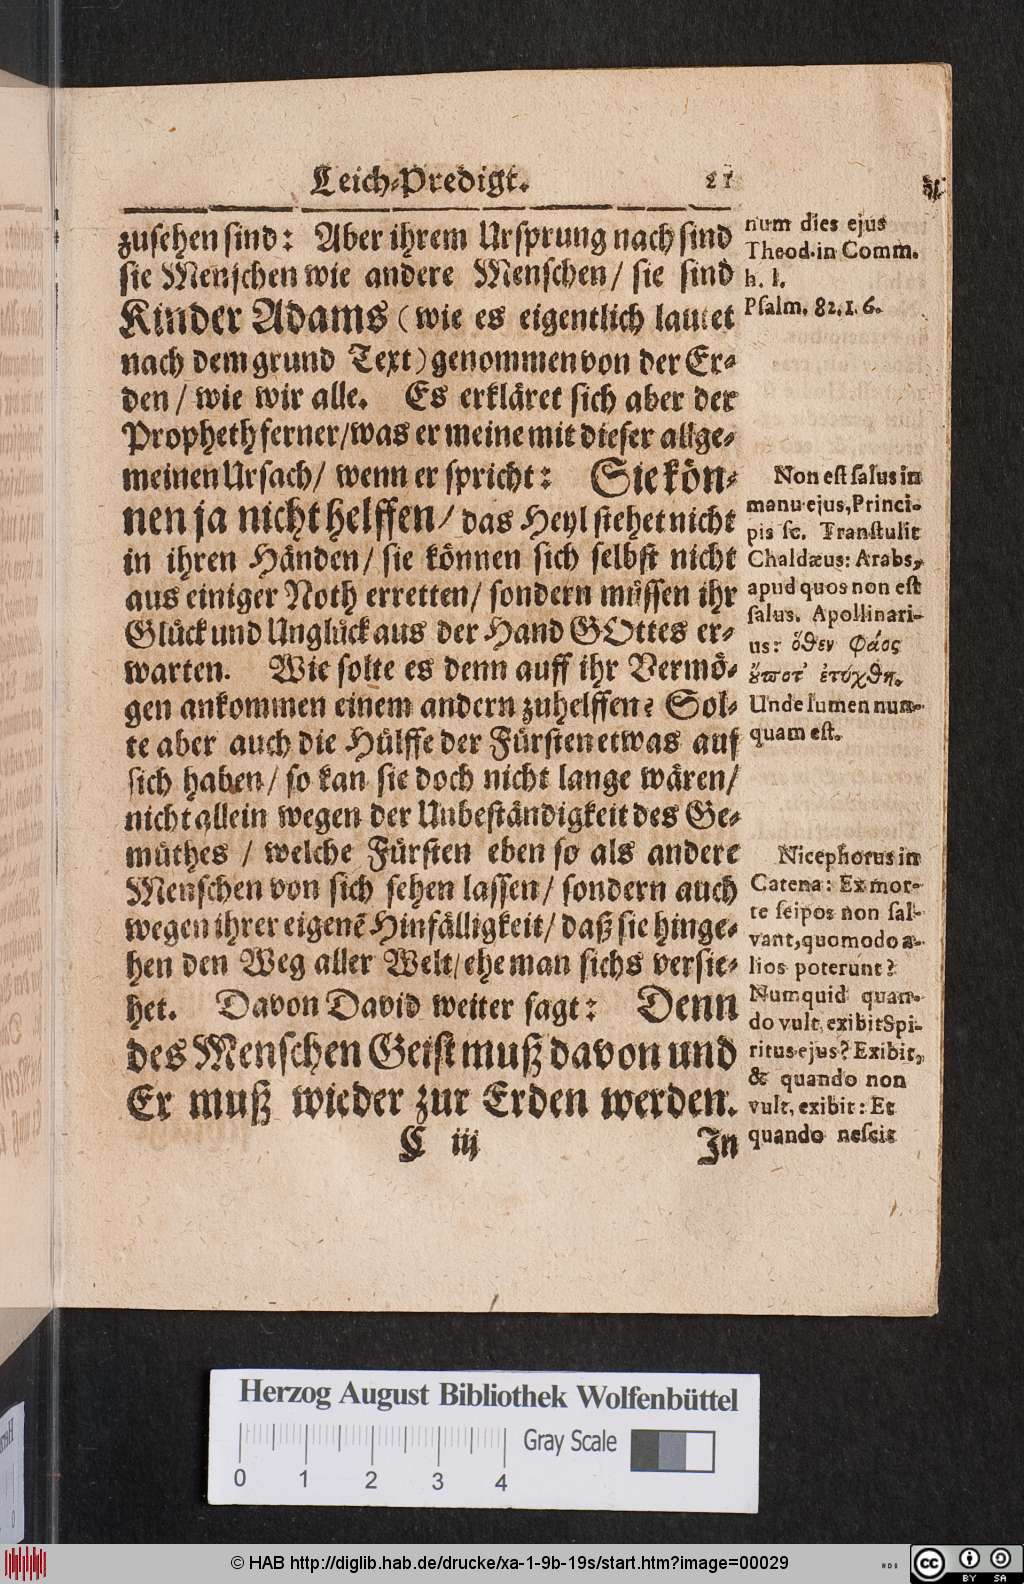 Leich-Predigt. 21
zusehen sind: Aber ihrem Ursprung nach sind
sie Menschen wie andere Menschen/ sie sind
Kinder Adams (wie es eigentlich lautet
nach dem grund Text) genommen von der Er-
den/ wie wir alle. Es erkläret sich aber der
Propheth ferner/was er meine mit dieser allge-
meinen Ursach/ wenn er spricht: Sie kön-
nen ja nicht helffen/ das Heyl stehet nicht
in ihren Händen/ sie können sich selbst nicht
aus einiger Noth erretten/ sondern müssen ihr
Glück und Unglück aus der Hand GOttes er-
warten. Wie solte es denn auff ihr Vermö-
gen ankommen einem andern zuhelffen? Sol-
te aber auch die Hülffe der Fürsten etwas auf
sich haben/ so kan sie doch nicht lange wären/
nicht allein wegen der Unbeständigkeit des Ge-
müthes / welche Fürsten eben so als andere
Menschen von sich sehen lassen/ sondern auch
wegen ihrer eigenē Hinfälligkeit/ daß sie hinge-
hen den Weg aller Welt/ehe man sichs versie-
het. Davon David weiter sagt: Denn
des Menschen Geist muß davon und
Er muß wieder zur Erden werden.
C iij In
num dies ejus
Theod. in Comm.
h. l.
Psalm. 82. 1. 6.
Non est salus in
manu ejus, Princi-
pis sc. Transtulit
Chaldæus: Arabs,
apud quos non est
salus. Apollinari-
us: ὅθεν φάος
ὄυποτ' ἐτύχθη.
Unde lumen nun-
quam est.
Nicephorus in
Catena: Ex mor-
te seipos non sal-
vant, quomodo a-
lios poterunt?
Numquid quan-
do vult, exibit Spi-
ritus ejus? Exibit,
& quando non
vult, exibit: Et
quando nescit
Herzog August Bibliothek Wolfenbüttel
0 1 2 3 4
Gray Scale
© HAB http://diglib.hab.de/drucke/xa-1-9b-19s/start.htm?image=00029
cc BY SA